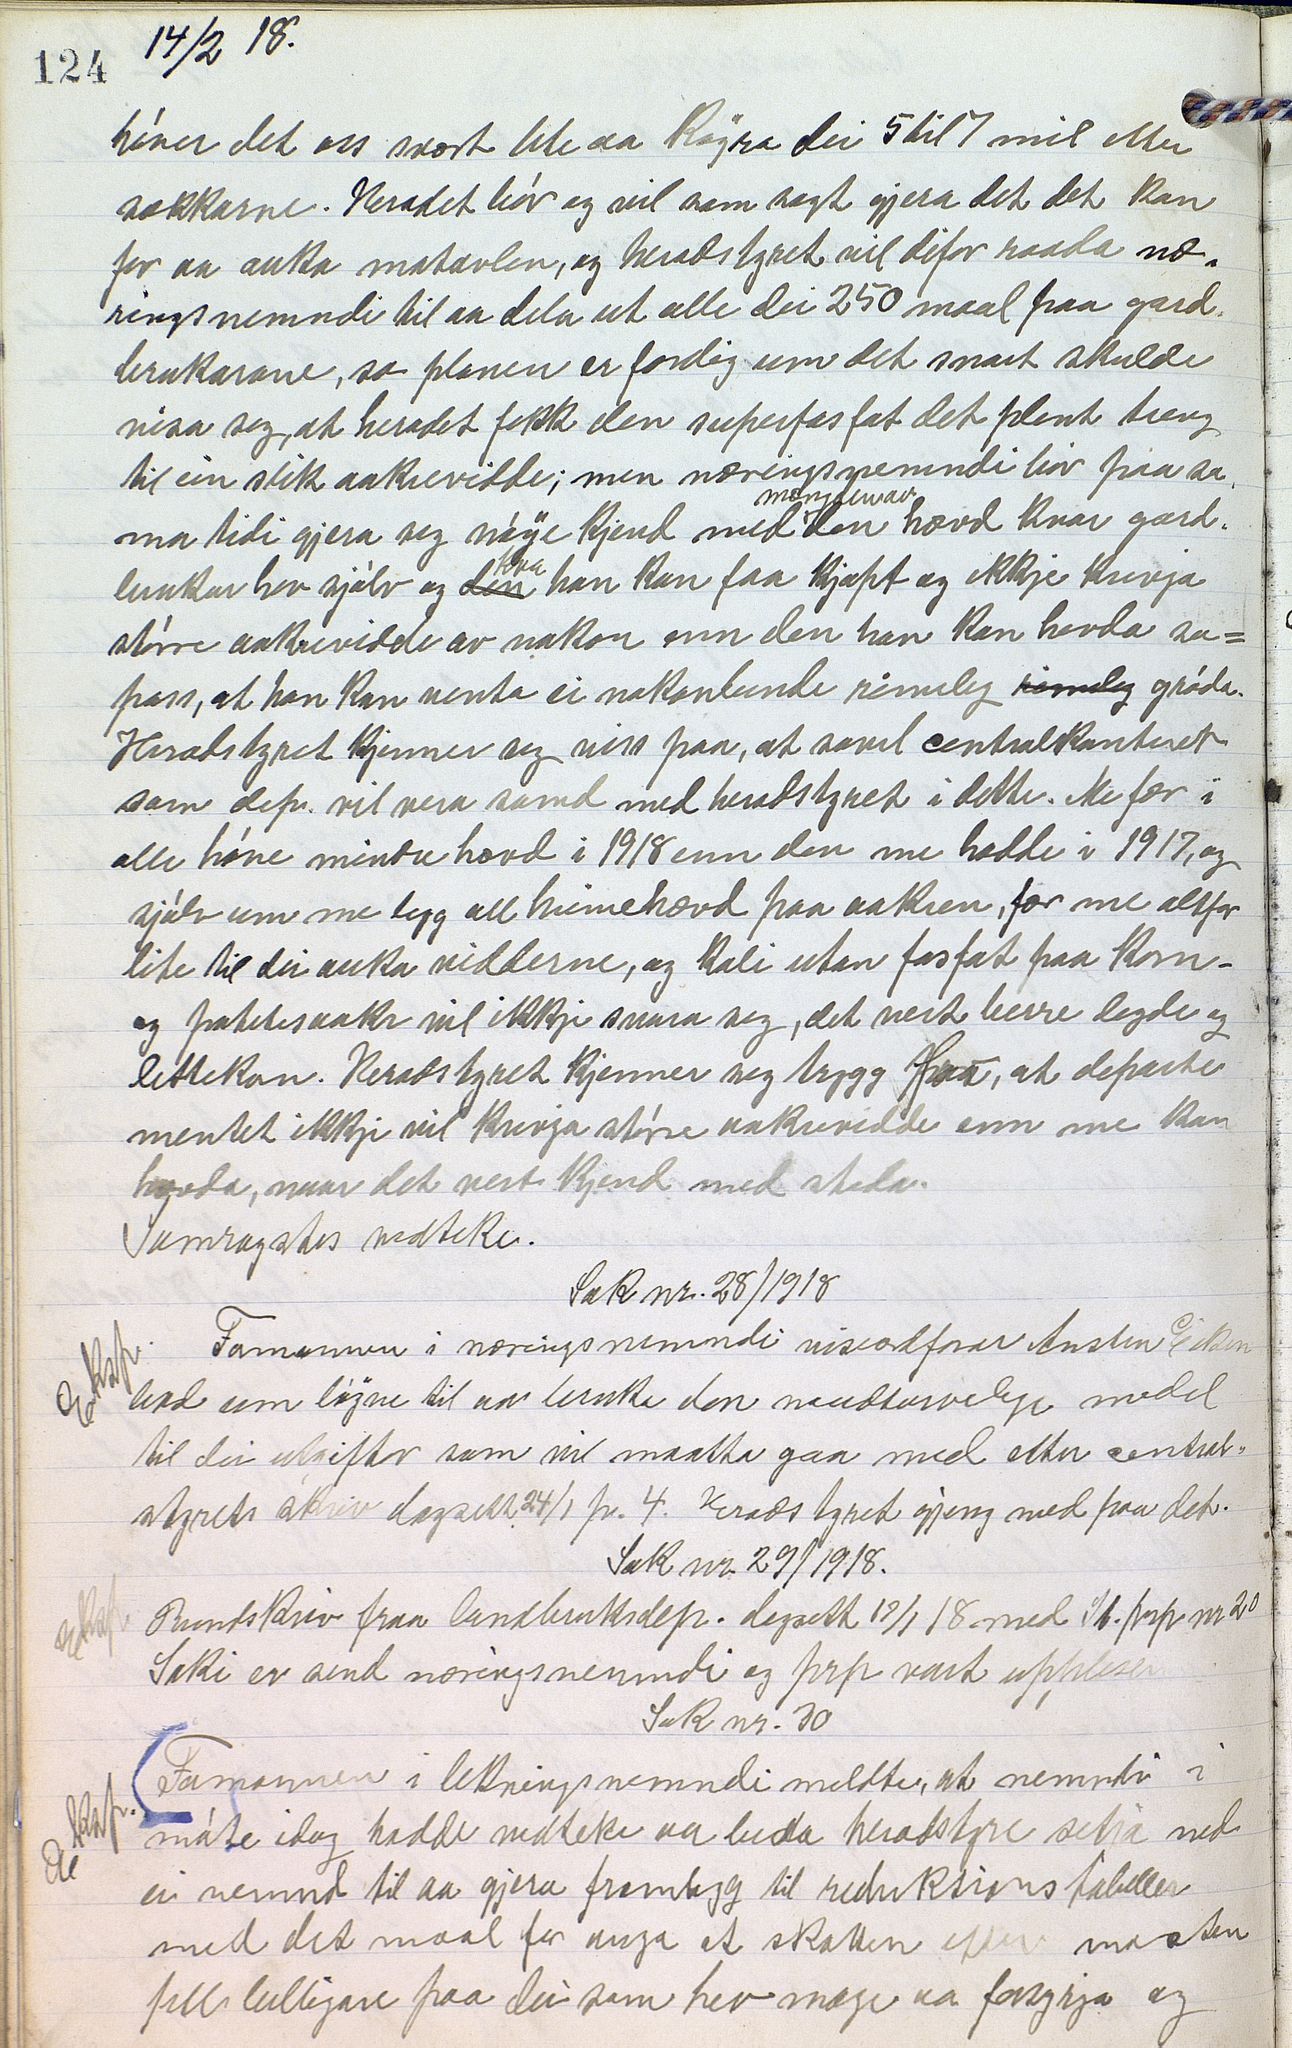 124
14/2 18.
høver det oss svært lite aa køyra dei 5 til 7 mil etter
sækkarne. Heradet bør og vil som sagt gjera det det kan
for aa auka matavlen, og heradstyret vil difor raada næ-
ringsnemndi til aa dela ut alle dei 250 maal paa gard-
brukarane, so planen er ferdig um det snart skulde
visa seg, at heradet fekk den superfosfat det plent treng
til ein slik aakrevidde; men næringsnemndi bør paa sa-
ma tidi gjera seg nøye kjend med mengdi av den hævd kvar gard-
brukar hev sjølv og den kva han kan faa kjøpt og ikkje krevja
større aakrevidde av nokon enn den han kan hevda so=
pass, at han kan venta ei nokonlunde rimeleg rimeleg grøda.
Heradstyret kjenner seg viss paa, at sovel centralkontoret
som dep. vil vera samd med heradstyret i dette. Me fær i
alle høve mindre hævd i 1918 enn den me hadde i 1917, og
sjølv um me legg all heimehævd paa aakren, fær me altfor
lite til dei auka vidderne, og kali utan fosfat paa korn-
og potetesaakr vil ikkje svara seg, det vert berre legde og
lettekorn. Heradstyret kjenner seg trygg paa, at departe
mentet ikkje vil krevja større aakrevidde enn me kan
hevda, naar det vert kjend med stoda.
Samrøystes vedteke.
Sak nr. 28/1918
Eksp. Formannen i næringsnemndi viseordførar Austen
bad um løyve til aa bruka den naudturvelege medel
til dei utgiftor som vil maatta gaa med etter central-
styrets skriv dagsett 24/1 p. 4. Heradstyret gjeng med paa det.
Sak nr. 29/1918.
Eksp. Rundskriv fraa landbruksdep. dagsett 18/1 18 med St. prp nr 20
Saki er send næringsnemndi og prp vart upplesen
Sak nr. 30
Eksp. Formannen i likningsnemndi meldte, at nemndi i
møte idag hadde vedteke aa beda heradstyre setja ned
ei nemnd til aa gjera framlegg til reduktionstabeller
med det maal for auga at skatten etter maaten
fell billigare paa dei som hev mage aa forsyrja og